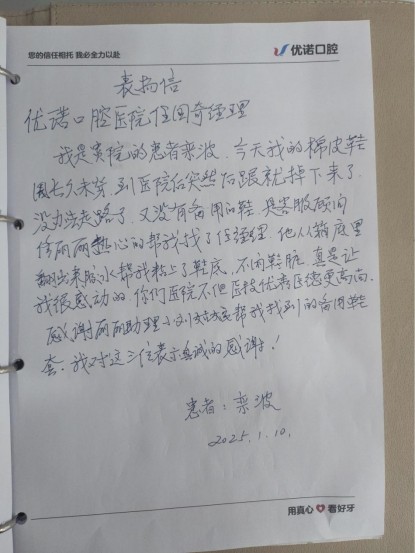 您的信任相托 我必全力以赴
优诺口腔
表扬信
优诺口腔医院任国奇经理
我是贵院的患者栾波、今天我的棉皮鞋
因长久未穿 到医院后突然后跟就掉下来了
没办法走路了、又没有备用的鞋、是客服顾问
佟丽丽热心的帮我找了任经理、他从箱底里
翻出来胶水帮我粘上了鞋底、不闲鞋脏、真是让
我很感动的、你们医院不但医技优秀医德更高尚、
感谢丽丽助理小刘姑娘帮我找到的备用鞋
套、我对这三位表示真诚的感谢！
患者：栾波
2025、1、10、
用真心 看好牙